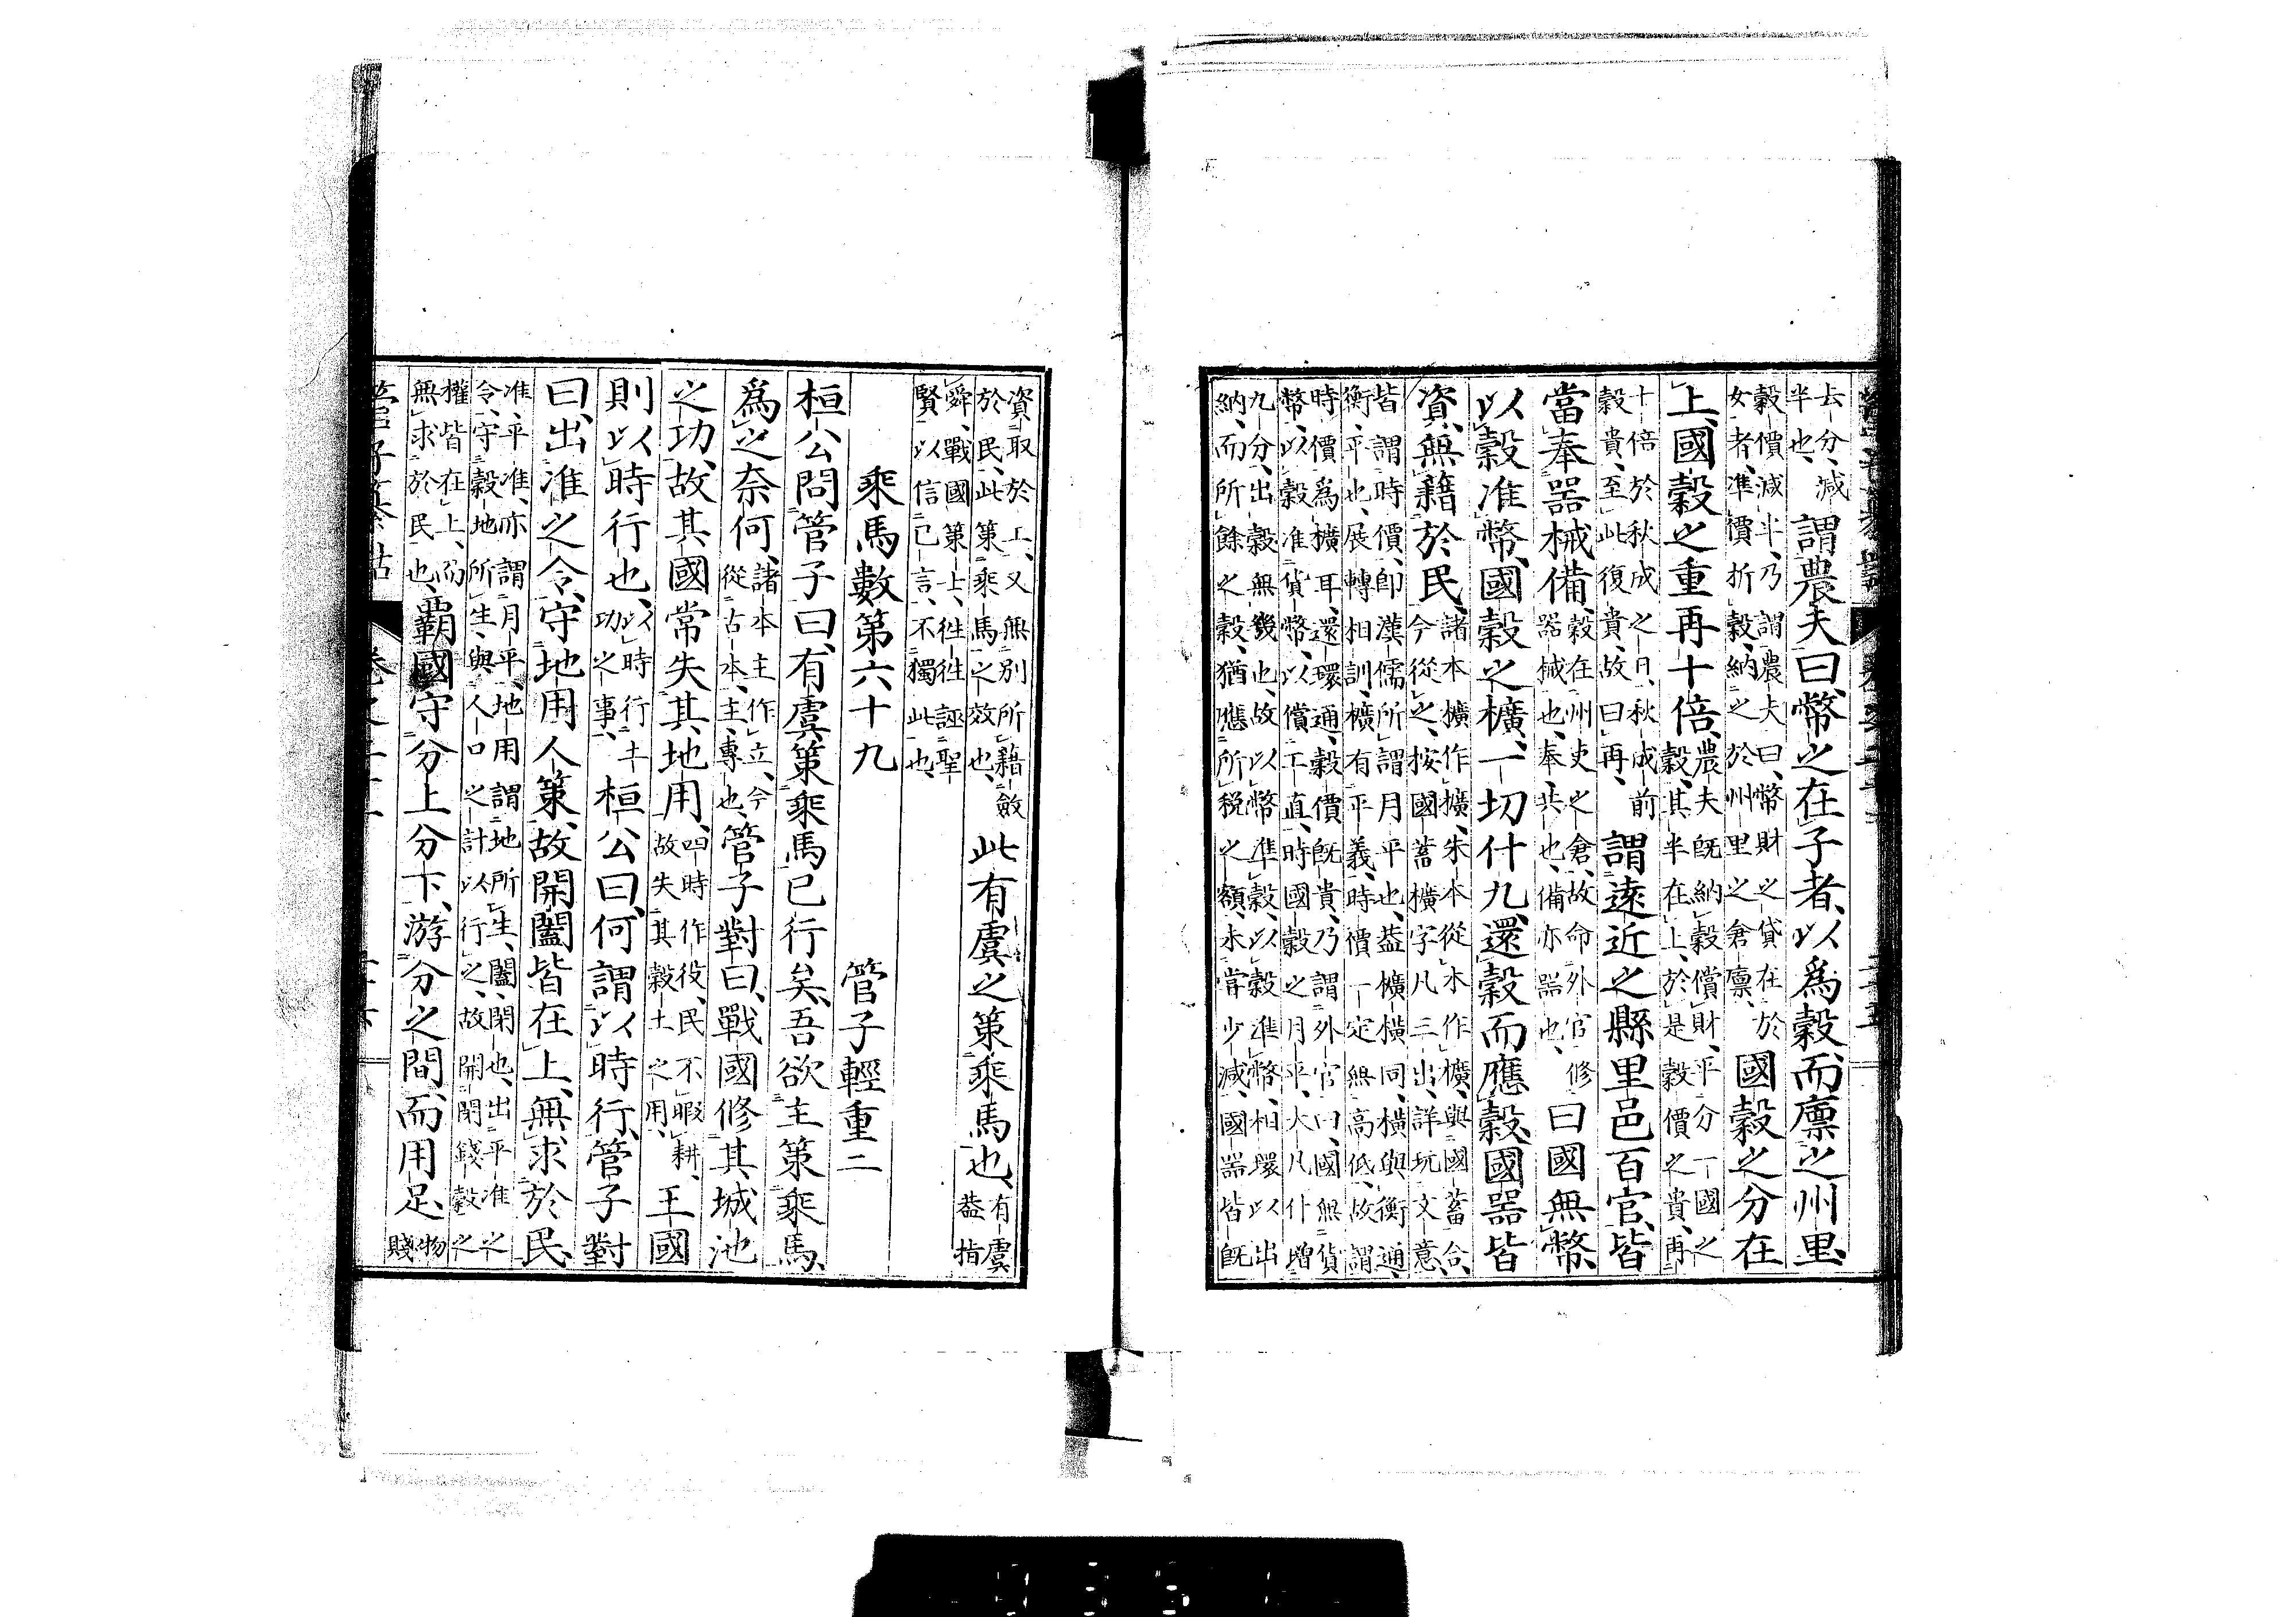 去分、減
半也、
謂農夫曰、幣之在子者、以爲穀而廩之州里、
穀價減半、乃謂農夫曰、幣財之貸在於
女者、準價折穀、納之於州里之倉廩、
國穀之分在
上、國穀之重再十倍、
農夫既納穀償財、平分一國之
穀、其半在上、於是穀價之貴、再
十倍於秋成之日、秋成前
穀貴、至此復貴、故曰再、
謂遠近之縣里邑百官、皆
當奉器械備、
穀在州吏之倉、故命外官修
器械也、奉、共也、備亦器也、
曰國無幣、
以穀准幣、國穀之櫎、一切什九、還穀而應穀、國器皆
資、無籍於民、
諸本櫎作擴、朱本從木作櫎、與國蓄合、
今從之、按國蓄櫎字凡三出、詳玩文意、
皆謂時價、卽漢儒所謂月平也、蓋櫎橫同、橫與衡通、
衡、平也、展轉相訓、櫎有平義、時價一定無高低、故謂
時價爲櫎耳、還、環通、穀價既貴、乃謂外官曰、國無貨
幣、以穀准貨幣、以償工直、時國穀之月平、大凡什增
九分、出穀無幾也、故以幣準穀、以穀准幣、相環以出
納、而所餘之穀、猶應所稅之額、未嘗少減、國器皆既
資、取於上、又無別所籍斂
於民、此策乘馬之效也、
此有虞之策乘馬也、
有虞、蓋指
舜、戰國策士、往往誣聖
賢以信己言、不獨此也、
乘馬數第六十九
管子輕重二
桓公問管子曰、有虞策乘馬已行矣、吾欲主策乘馬、
爲之奈何、
諸本主作立、今
從古本、主、專也、
管子對曰、戰國修其城池
之功、故其國常失其地用、
四時作役、民不暇耕、
故失其穀土之用、
王國
則以時行也、
以時行土
功之事、
桓公曰、何謂以時行、管子對
曰、出准之令、守地用人策、故開闔皆在上、無求於民、
准、平准、亦謂月平、地用謂地所生、闔、閉也、出平准之
令、守穀地所生、與人口之計以行之、故開閉錢穀之
權皆在上、而
無求於民也、
覇國守分上分下、游分之間、而用足、
物
賤
管子纂詁